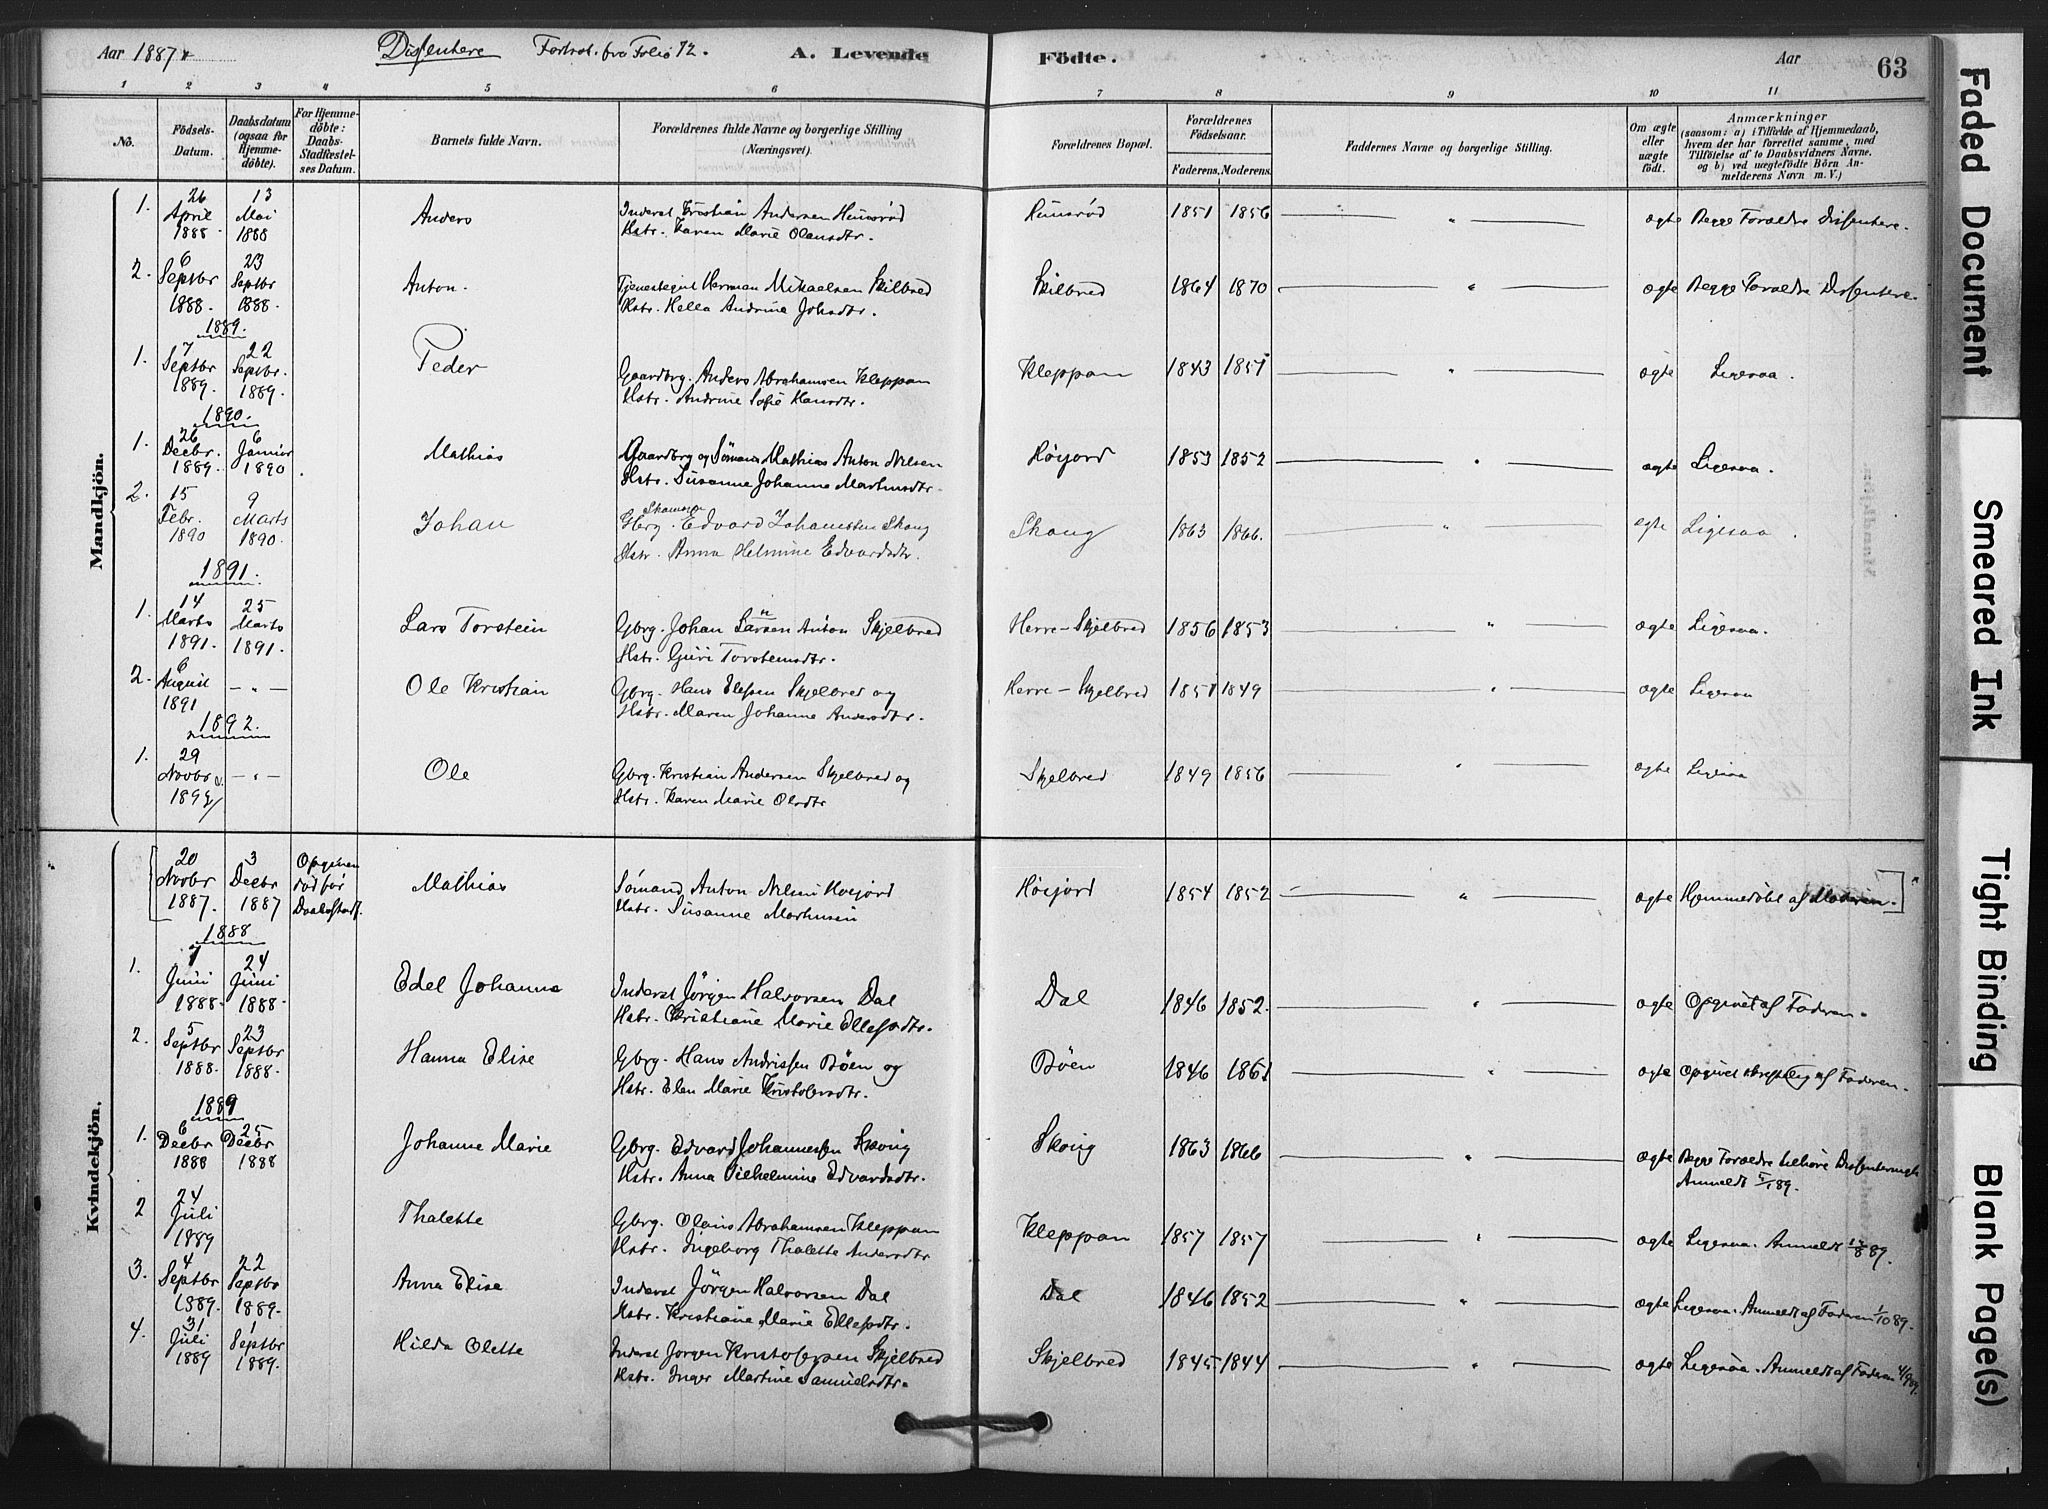 Aar 1887 Dissentere Fortsat. fra Folio 12. A. Levende Födte. Aar 63
1 2 3 4 5 6 7 8 9 10 11
No. Födsels-Datum. Daabsdatum (ogsaa for Hjemmedöbte). For Hjemmedöbte: Daabs-Stadfæstelses Datum. Barnets fulde Navn. Forældrenes fulde Navne og borgerlige Stilling (Næringsvei). Forældrenes Bopæl. Forældrenes Födselsaar. Faderens. Moderens. Faddernes Navne og borgerlige Stilling. Om ægte eller uægte födt. Anmærkninger (saasom: a) i Tilfælde af Hjemmedaab, hvem der har forrettet samme, med Tilföielse af to Daabsvidners Navne, og b) ved uægtefödte Börn Anmelderens Navn m. V.)
Mandkjön.
1. 26 April 1888 13 Mai 1888 Anders Inderst Kristian Andersen
Hstr. Karen Marie Olausdtr. 1851 1856 ægte Begge Forældre Dissentere.
2. 6 Septbr 1888 23 Septbr 1888 Anton. Herman Mikaelsen Skilbred
Hstr. Hella Andrine Johsdtr. Skilbred 1864 1870 ægte Begge Forældre Dissentere
1889.
1. 7 Septbr 1889. 22 Septbr. 1889. Peder Gaardbrg. Anders Abrahamsen Kleppan
Hstr. Andrine Sofie Hansdtr. Kleppan 1843 1851 ægte Ligesaa.
1890.
1. 26 Decbr. 1889. 6 Januar 1890 Mathias Gaardbrg og Sømand Mathias Anton Nilsen
Hstr. Susanne Johanne Martinsdtr. Høijord 1853 1852 ægte Ligesaa.
2. 15 Febr. 1890 9 Marts 1890. Johan Gbrg. Edvard Johannesen Skoug
Hstr. Anna Helmine Edvardsdtr. Skoug 1863 1866. ægte Ligesaa.
1891.
1. 14 Marts 1891. 25 Marts 1891. Lars Torstein Gbrg. Johan Larsen Anton Skjelbred
Hstr. Guri Torsteinsdtr. Herre-Skjelbred 1856 1853 ægte Ligesaa.
2. 6 August 1891 - " - Ole Kristian Gbrg. Hans Olesen Skjelbred og
Hstr. Maren Johanne Andersdtr. Herre-Skjelbred 1851 1849 ægte Ligesaa
1892.
1. 29 Novbr - " - Ole Gbrg. Kristian Andersen Skjelbred og
Hstr. Karen Marie Olsdtr Skjelbred 1849 1856 ægte Ligesaa
Kvindekjön.
20 Novbr 1887. 3 Decbr 1887 Mathias Sømand Anton Nilsen Høijord
Hstr. Susanne Martinsen Høijord 1854 1852 ægte Hjemmedøbt af Moderen.
1888
1. 7 Juni 1888. 24 Juni 1888. Edel Johanne Inderst Jörgen Halvorsen Dal
Hstr. Christiane Marie Ellefsdtr. Dal 1846 1852. ægte Opgivet af Faderen.
2. 5 Septbr 1888 23 Septbr 1888. Hanna Elise Gbrg. Hans Andrissen Bøen og
Hstr. Elen Marie Kristofersdtr. Bøen 1846 1861 ægte Opgivet skriftlig af Faderen.
1889
1. 6 Decbr 1888 25 Decbr 1888 Johanne Marie Gbrg. Edvard Johannessen Skoug
Hstr. Anna Vilhelmine Edvardsdtr. Skoug 1863 1866 ægte Begge Forældre tilhöre
Anmeldt
2 24 Juli 1889 Thalette Gbrg. Olaus Abrahamsen Kleppan
Hstr. Ingeborg Thalette Andersdtr Kleppan 1857 1857 ægte Ligesaa. Anmeldt
3. 4 Septbr 1889. 22 Septbr 1889. Anna Elise Inderst Jörgen Halvorsen Dal
Hstr. Kristiane Marie Ellefsdtr. Dal 1846 1852 ægte Ligesaa. Anmeldt af Faderen 1/10 89.
4. 31 Juli 1889 1 Septbr 1889. Hilda Olette Inderst Jørgen Kristofersen Skjelbred
Hstr. Inger Martine Samuelsdtr. Skjelbred 1845 1844 ægte Ligesaa. Anmeldt af Faderen
Faded Document
Smeared Ink
Tight Binding
Blank Page(s)